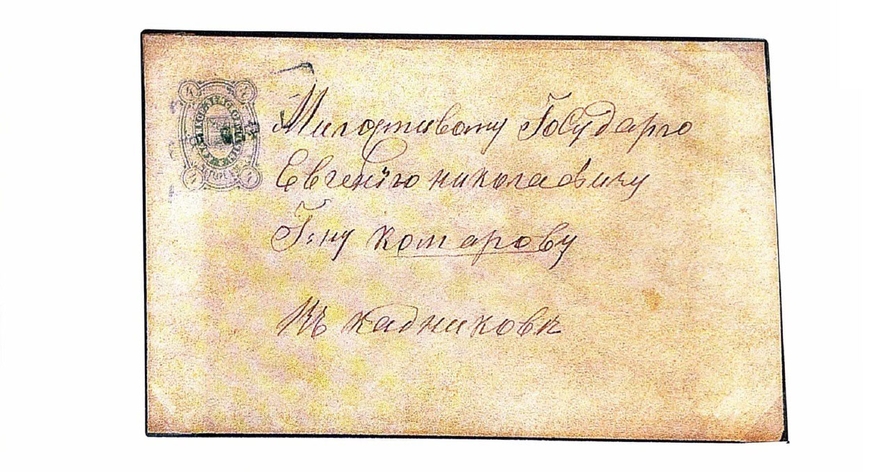 Милостивому Государю
Евгенію николаевичу
Г=ну комарову
Въ кадниковѣ